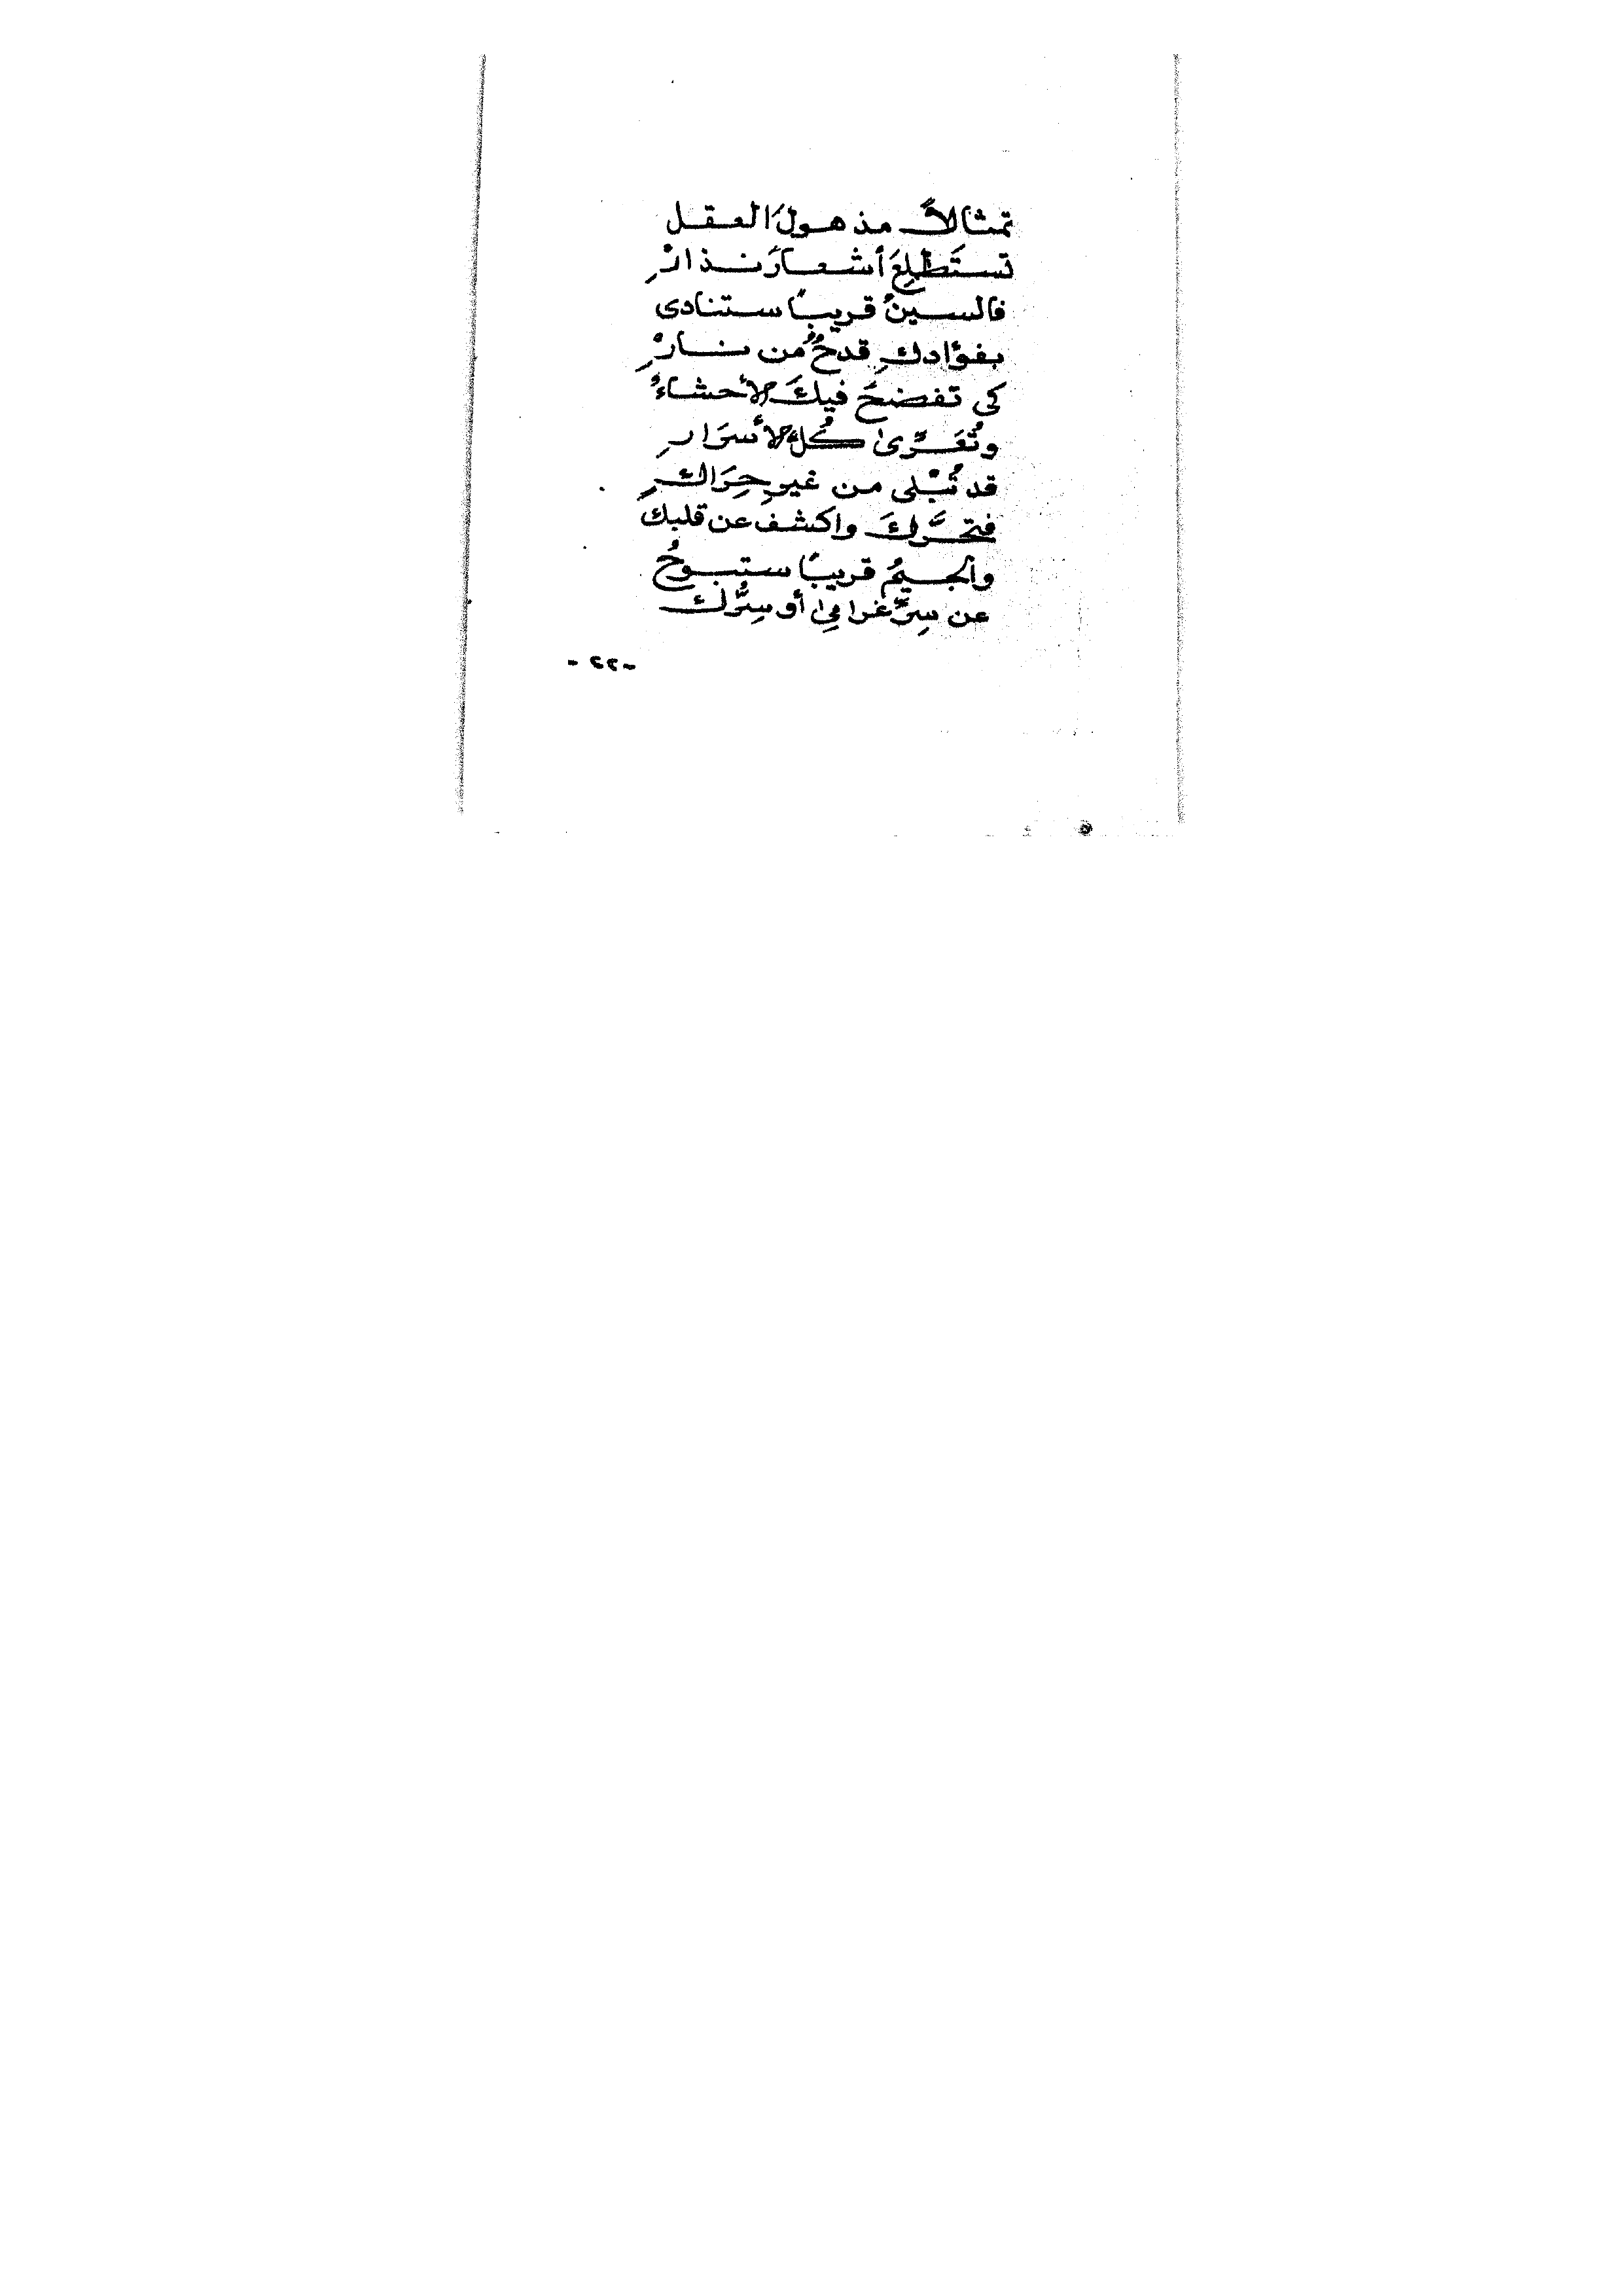 تمثالاً مذهولَ العقل
تستَطْلِعَ أشعارَ نذارْ
فالسينُ قريبًا ستنادى
بفؤادكِ قدحٌ من نارْ
كى تفضحَ فيكَ الأحشاءُ
وتُعَرِّىٰ كُلَّ الأسرَارِ
قد تُبْلى من غيرِ حِرَاكٍ
فتحرَّكَ واكشف عن قلبك
والجيمُ قريبًا ستبوحُ
عن سِرِّ غرامِىٰ أو سِرُّك
-٢٢-